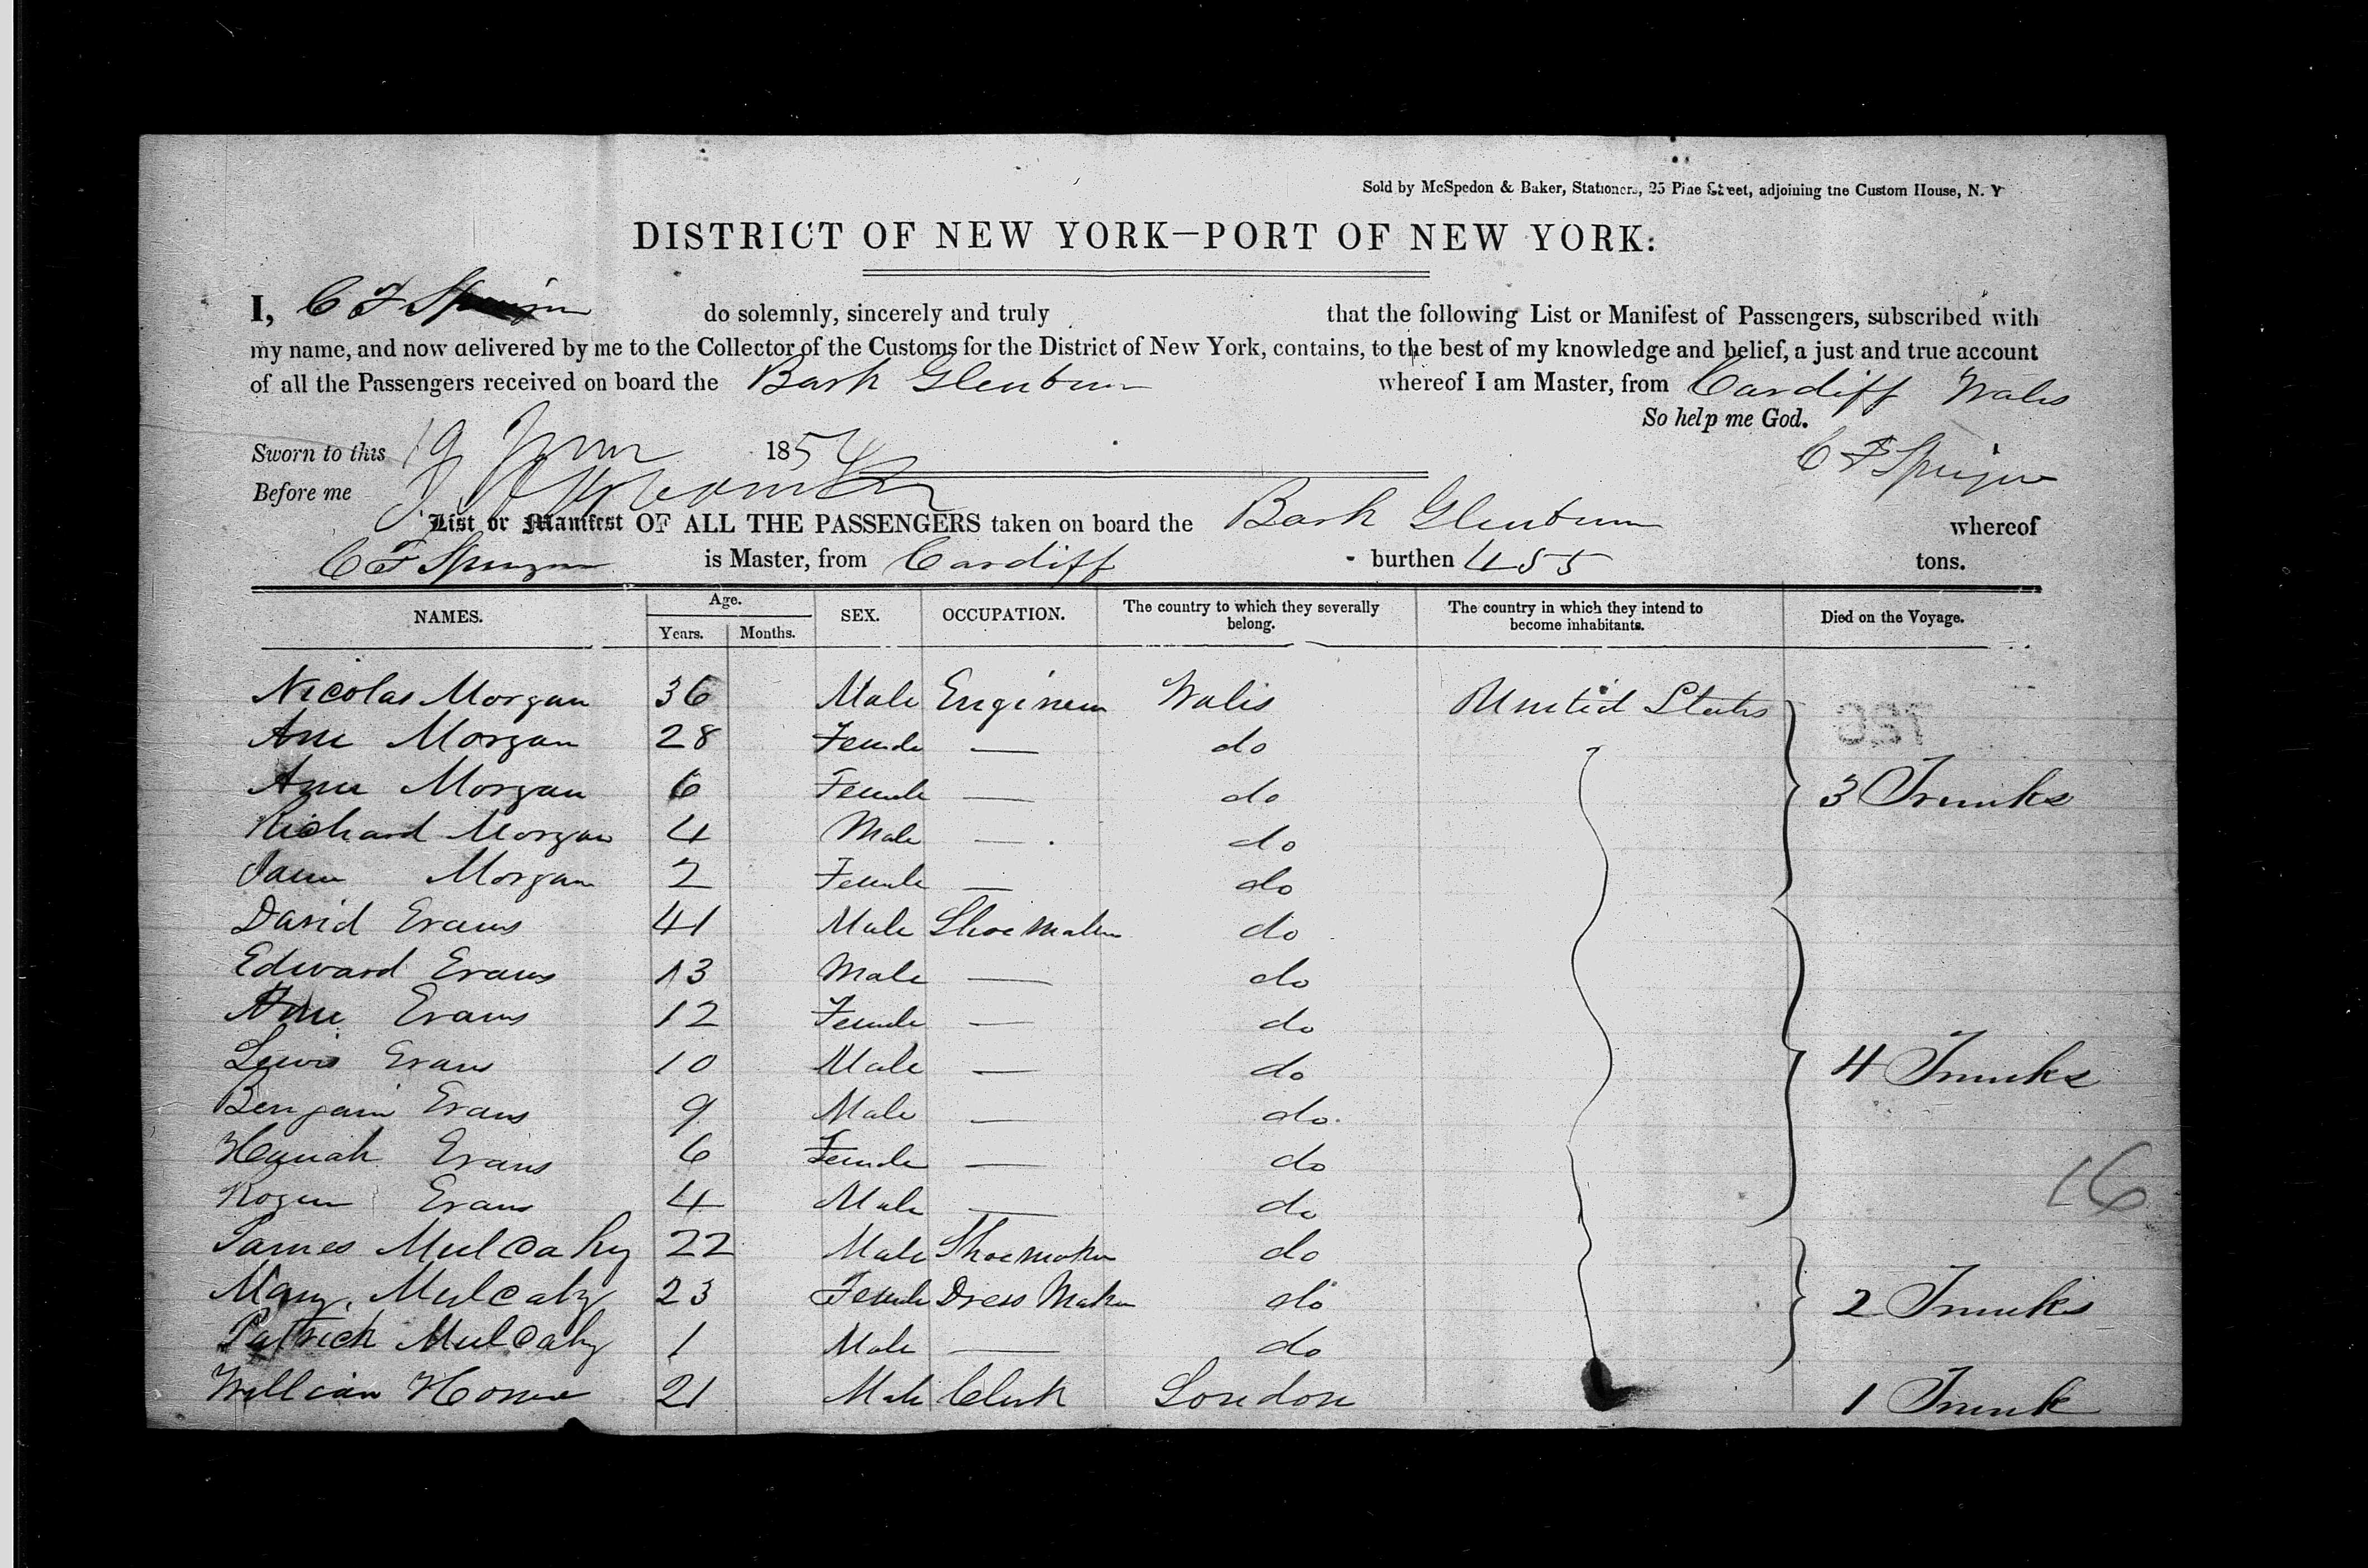 Sold by McSpedon & Baker, Stationers, 25 Pine Street, adjoining the Custom House, N. Y
DISTRICT OF NEW YORK—PORT OF NEW YORK:
I, C F do solemnly, sincerely and truly that the following List or Manifest of Passengers, subscribed with
my name, and now delivered by me to the Collector of the Customs for the District of New York, contains, to the best of my knowledge and belief, a just and true account
of all the Passengers received on board the Bark Glenburn whereof I am Master, from Cardiff Wales
So help me God.
Sworn to this 19 June 1854
C F
Before me
List or Manifest OF ALL THE PASSENGERS taken on board the Bark Glenburn whereof
C F is Master, from Cardiff burthen 455 tons.
NAMES. Age. Years. Months. SEX. OCCUPATION. The country to which they severally belong. The country in which they intend to become inhabitants. Died on the Voyage.
Nicolas Morgan 36 Male Engineer Wales United States
Ann Morgan 28 Female — do
Ann Morgan 6 Female — do 3 Trunks
Richard Morgan 4 Male — do
Jane Morgan 2 Female — do
David Evans 41 Male Shoe Maker do
Edward Evans 13 Male — do
Ann Evans 12 Female — do
Lewis Evans 10 Male — do 4 Trunks
Benjain Evans 9 Male — do
Hannah Evans 6 Female — do
16
Roger Evans 4 Male — do
James Mulcahy 22 Male Shoemaker do
Mary Mulcahy 23 Female Dress Maker do 2 Trunks
Patrick Mulcahy 1 Male — do
William 21 Male Clerk London 1 Trunk